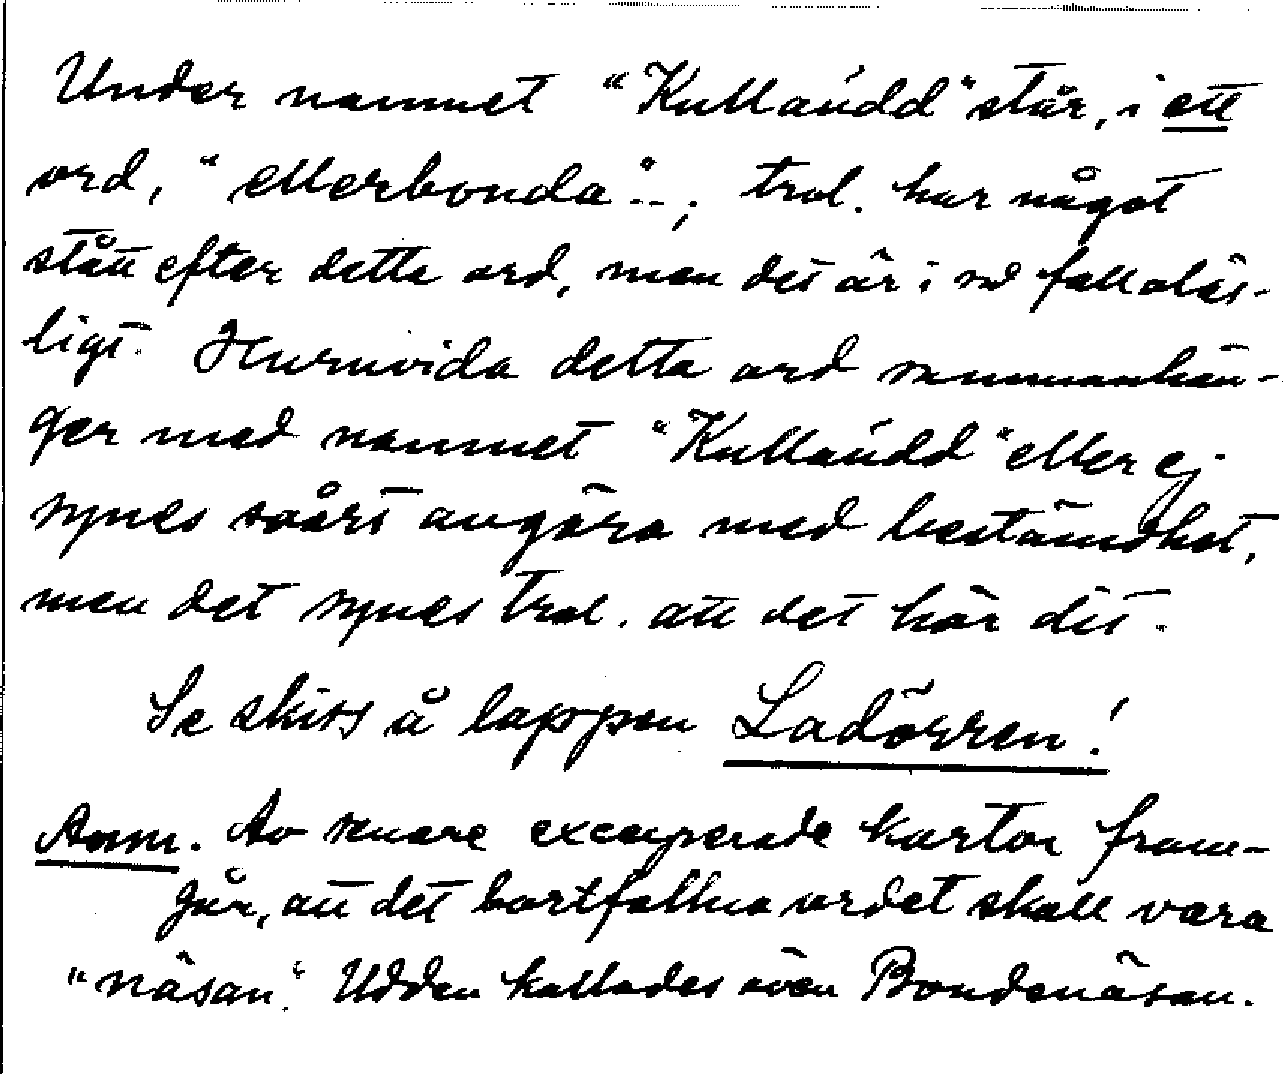 Under namnet "Kullaúdd" står, i ett
ord, "ellerbonda"..; trol. har något
stått efter dette ord, men det är i så fall oläs-
ligt. Huruvida detta ord samanhän-
ger med namnet "Kullaúdd" eller ej
synes svårt avgöra med bestämdhet,
men det synes trol. att det hör dit.
Se skiss å lappen Ladörren!
Anm. Av senare excerperade kartor fram-
går, att det bortfallna ordet skall vara
"näsan". Udden kallades även Bondenäsan.